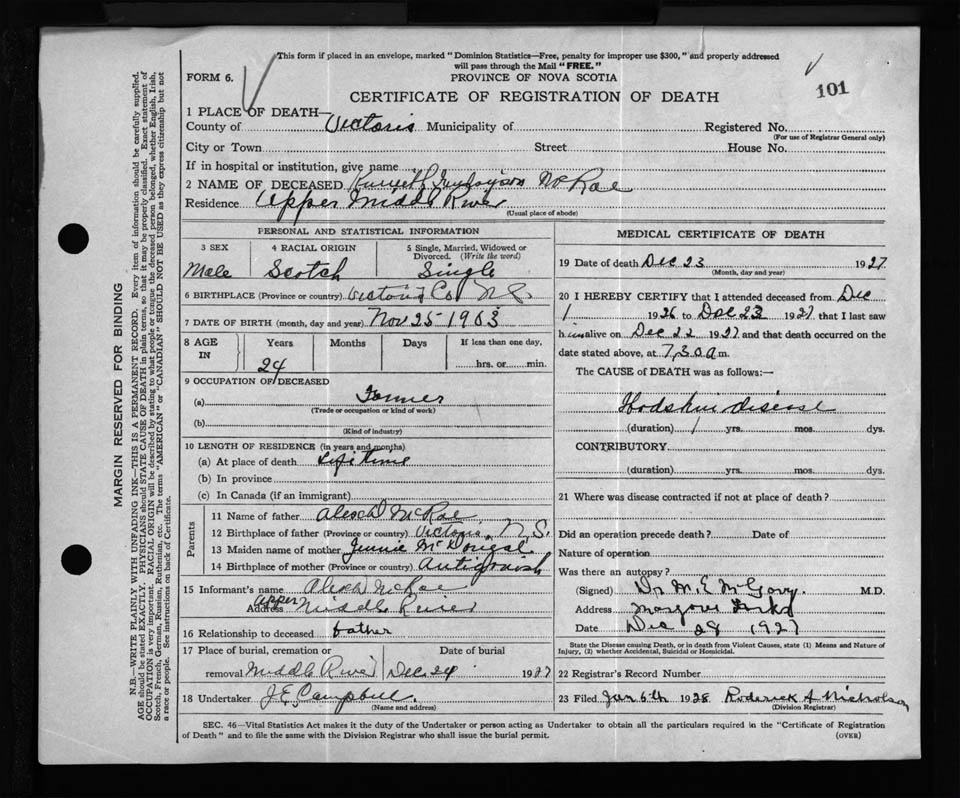 This form if placed in an envelope, marked "Dominion Statistics—Free, penalty for improper use $300," and properly addressed
will pass through the Mail "FREE."
FORM 6.
PROVINCE OF NOVA SCOTIA
101
CERTIFICATE OF REGISTRATION OF DEATH
1 PLACE OF DEATH—
County of Victoria Municipality of Registered No.
(For use of Registrar General only)
City or Town Street House No.
If in hospital or institution, give name
2 NAME OF DECEASED Kenneth McRae
Residence Upper Middle River
(Usual place of abode)
PERSONAL AND STATISTICAL INFORMATION
3 SEX 4 RACIAL ORIGIN 5 Single, Married, Widowed or Divorced. (Write the word)
Male Scotch Single
6 BIRTHPLACE (Province or country) Victoria Co N.S.
7 DATE OF BIRTH (month, day and year) Nov 25 1903
8 AGE IN Years Months Days If less than one day,
24 hrs. or min.
9 OCCUPATION OF DECEASED
(a) Farmer
(Trade or occupation or kind of work)
(b)
(Kind of industry)
10 LENGTH OF RESIDENCE (in years and months)
(a) At place of death Life time
(b) In province
(c) In Canada (if an immigrant)
Parents
11 Name of father Alexd McRae
12 Birthplace of father (Province or country) Victoria, N.S.
13 Maiden name of mother Jennie McDougal
14 Birthplace of mother (Province or country) Antigonish
15 Informant's name Alexd McRae
Address Upper Middle River
16 Relationship to deceased father
17 Place of burial, cremation or removal Middle River
Date of burial Dec 24 1927
18 Undertaker J.E. Campbell.
(Name and address)
MEDICAL CERTIFICATE OF DEATH
19 Date of death Dec 23 1927
(Month, day and year)
20 I HEREBY CERTIFY that I attended deceased from Dec
1 1926 to Dec 23 1927 that I last saw
him alive on Dec 22 1927 and that death occurred on the
date stated above, at 7.30 a m.
The CAUSE of DEATH was as follows:—
Hodskin disease
(duration) 1 yrs. mos. dys.
CONTRIBUTORY
(duration) yrs. mos. dys.
21 Where was disease contracted if not at place of death?
Did an operation precede death? Date of
Nature of operation
Was there an autopsy?
(Signed) Dr M.E. McGarry. M.D.
Address Margaree Forks
Date Dec 28 1927
State the Disease causing Death, or in death from Violent Causes, state (1) Means and Nature of
Injury, (2) whether Accidental, Suicidal or Homicidal.
22 Registrar's Record Number
23 Filed Jan 6th 1928 Roderick A Nicholson
(Division Registrar)
SEC. 46—Vital Statistics Act makes it the duty of the Undertaker or person acting as Undertaker to obtain all the particulars required in the "Certificate of Registration
of Death" and to file the same with the Division Registrar who shall issue the burial permit.
(OVER)
MARGIN RESERVED FOR BINDING
N.B.—WRITE PLAINLY WITH UNFADING INK—THIS IS A PERMANENT RECORD. Every item of information should be carefully supplied.
AGE should be stated EXACTLY. PHYSICIANS should STATE CAUSE OF DEATH in plain terms, so that it may be properly classified. Exact statement of
OCCUPATION is very important. RACIAL ORIGIN will be described by stating to what people or tongue the deceased person belonged, whether English, Irish,
Scotch, French, German, Russian, Ruthenian, etc. The terms "AMERICAN" or "CANADIAN" SHOULD NOT BE USED as they express citizenship but not
a race or people. See instructions on back of Certificate.